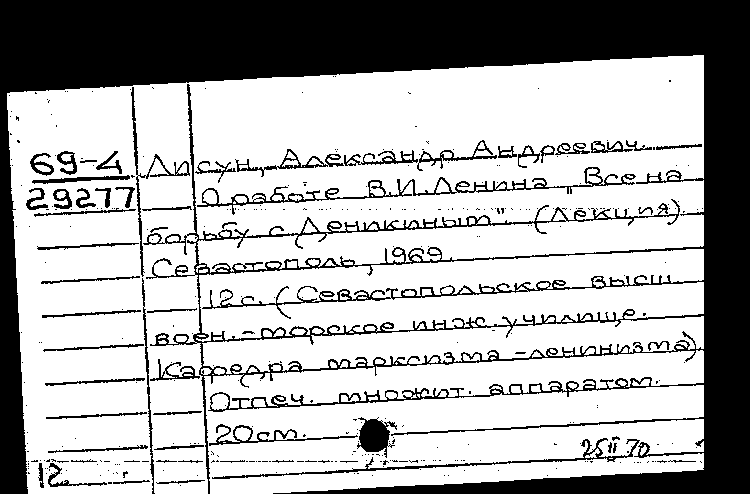 69-4 Лисун, Александр Андреевич.
29277 О работе В.И.Ленина „Все на
борьбу с Деникиным". (Лекция).
Севастополь, 1969.
12с. (Севастопольское высш.
воен.-морское инж. училище.
Кафедра марксизма-ленинизма).
Отпеч. множит. аппаратом.
20см.
25 II 70
12.